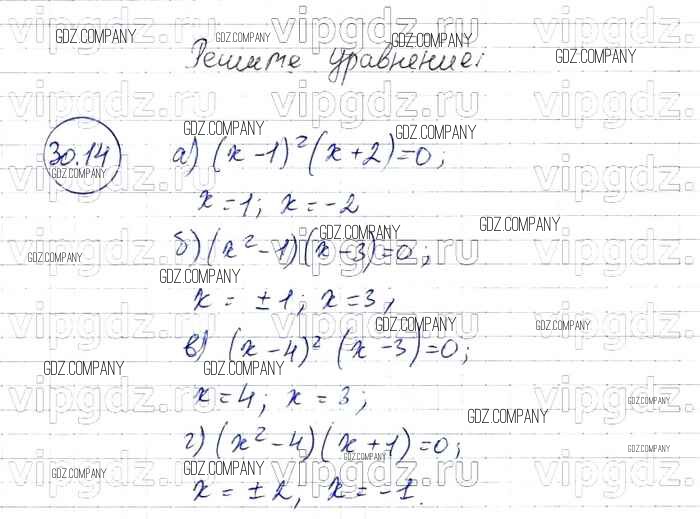 Решите уравнение:
30.14
а) (x-1)²(x+2)=0;
x=1; x=-2
б) (x²-1)(x-3)=0;
x = ±1; x=3;
в) (x-4)² (x-3)=0;
x=4; x=3;
г) (x²-4)(x+1)=0;
x=±2, x=-1.
GDZ.COMPANY
vipgdz.ru